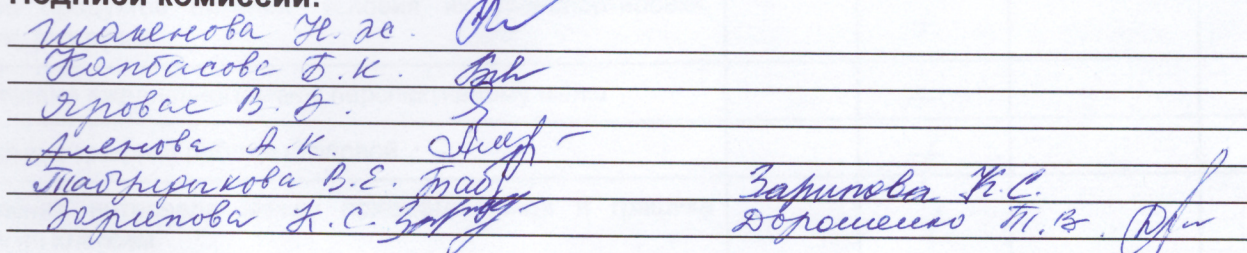 Подписи комиссии:
Шакенова Н.Ж.
Капбасова Б.К.
Яровая В.А.
Аленова А.К.
Табулдыкова В.Е. Таб
Зарипова К.С. Зарипова К.С.
Дорошенко Т.В.